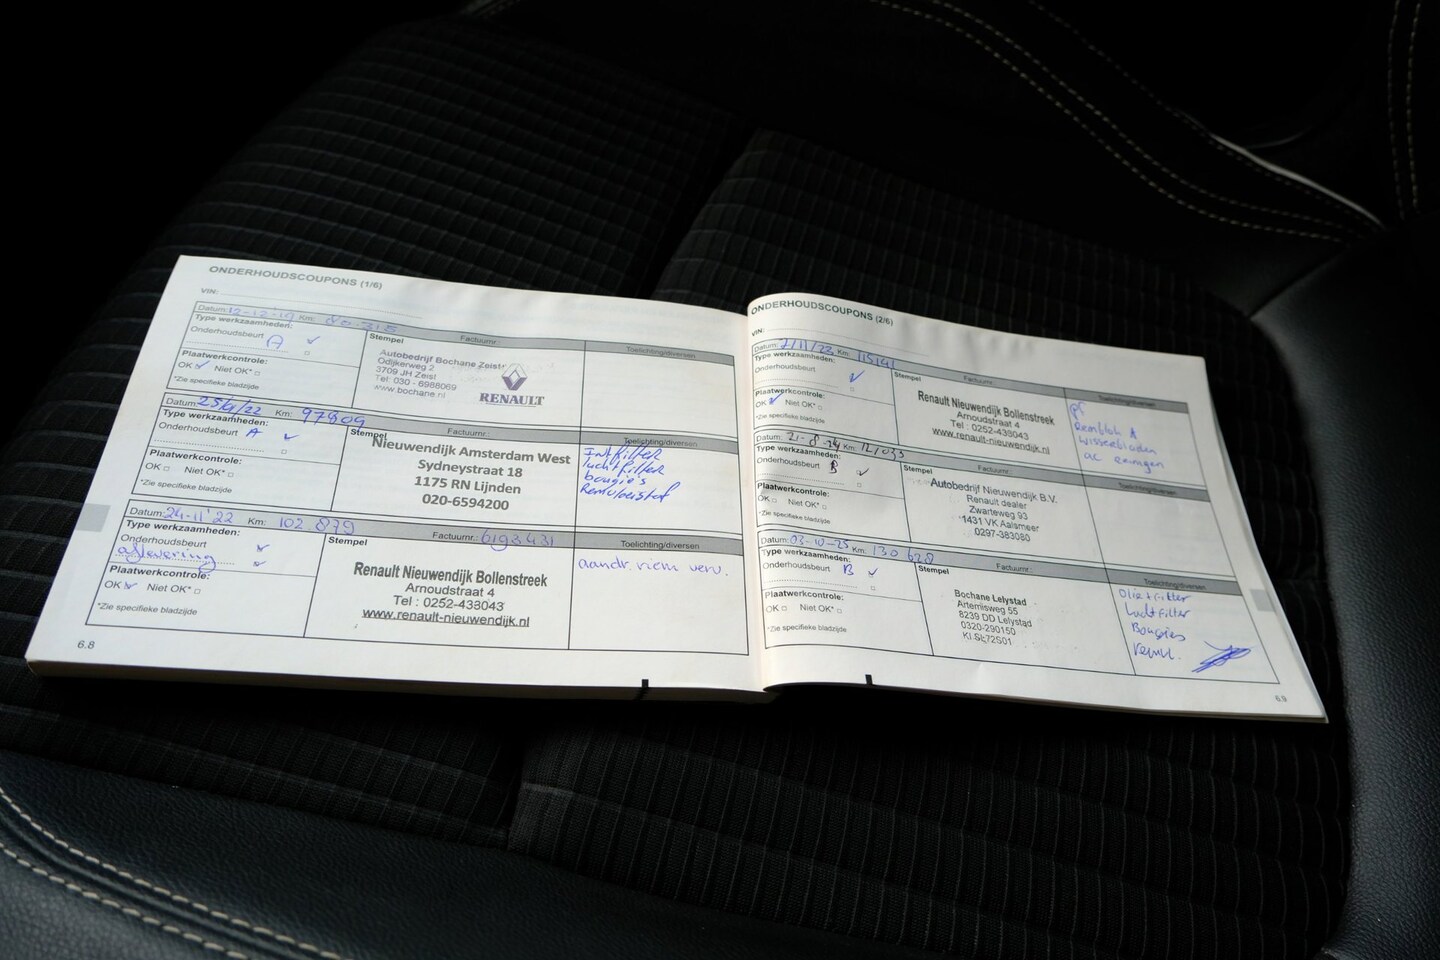 ONDERHOUDSCOUPONS (1/6)
VIN:
Datum: 12-12-19 Km: 80.315
Type werkzaamheden:
Onderhoudsbeurt A ✓
Plaatwerkcontrole:
OK ✓ Niet OK* □
*Zie specifieke bladzijde
Stempel
Factuurnr.:
Autobedrijf Bochane Zeist
Odijkerweg 2
3709 JH Zeist
Tel: 030 - 6988069
www.bochane.nl
RENAULT
Toelichting/diversen
Datum: 25/4/22 Km: 97809
Type werkzaamheden:
Onderhoudsbeurt A ✓
Plaatwerkcontrole:
OK □ Niet OK* □
*Zie specifieke bladzijde
Stempel
Factuurnr.:
Nieuwendijk Amsterdam West
Sydneystraat 18
1175 RN Lijnden
020-6594200
Toelichting/diversen
Int filter
luchtfilter
bougie's
Remvloeistof
Datum: 24-11'22 Km: 102 879
Type werkzaamheden:
Onderhoudsbeurt ✓
aflevering ✓
Plaatwerkcontrole:
OK ✓ Niet OK* □
*Zie specifieke bladzijde
Stempel
Factuurnr.: 6193431
Renault Nieuwendijk Bollenstreek
Arnoudstraat 4
Tel : 0252-438043
www.renault-nieuwendijk.nl
Toelichting/diversen
aandr. riem verv.
6.8
ONDERHOUDSCOUPONS (2/6)
VIN:
Datum: 7/11/23 Km:
Type werkzaamheden:
Onderhoudsbeurt ✓
Plaatwerkcontrole:
OK ✓ Niet OK* □
*Zie specifieke bladzijde
Stempel
Factuurnr.:
Renault Nieuwendijk Bollenstreek
Arnoudstraat 4
Tel : 0252-438043
www.renault-nieuwendijk.nl
Toelichting/diversen
pf
Remblok A
wisserbladen
ac reinigen
Datum: 21-8-24 Km:
Type werkzaamheden:
Onderhoudsbeurt B ✓
Plaatwerkcontrole:
OK □ Niet OK* □
*Zie specifieke bladzijde
Stempel
Factuurnr.:
Autobedrijf Nieuwendijk B.V.
Renault dealer
Zwarteweg 93
1431 VK Aalsmeer
0297-383080
Toelichting/diversen
Datum: 03-10-25 Km: 130 628
Type werkzaamheden:
Onderhoudsbeurt B ✓
Plaatwerkcontrole:
OK □ Niet OK* □
*Zie specifieke bladzijde
Stempel
Factuurnr.:
Bochane Lelystad
Artemisweg 55
8239 DD Lelystad
0320-290150
Toelichting/diversen
Olie+Filter
Luchtfilter
Bougies
Remvl.
6.9